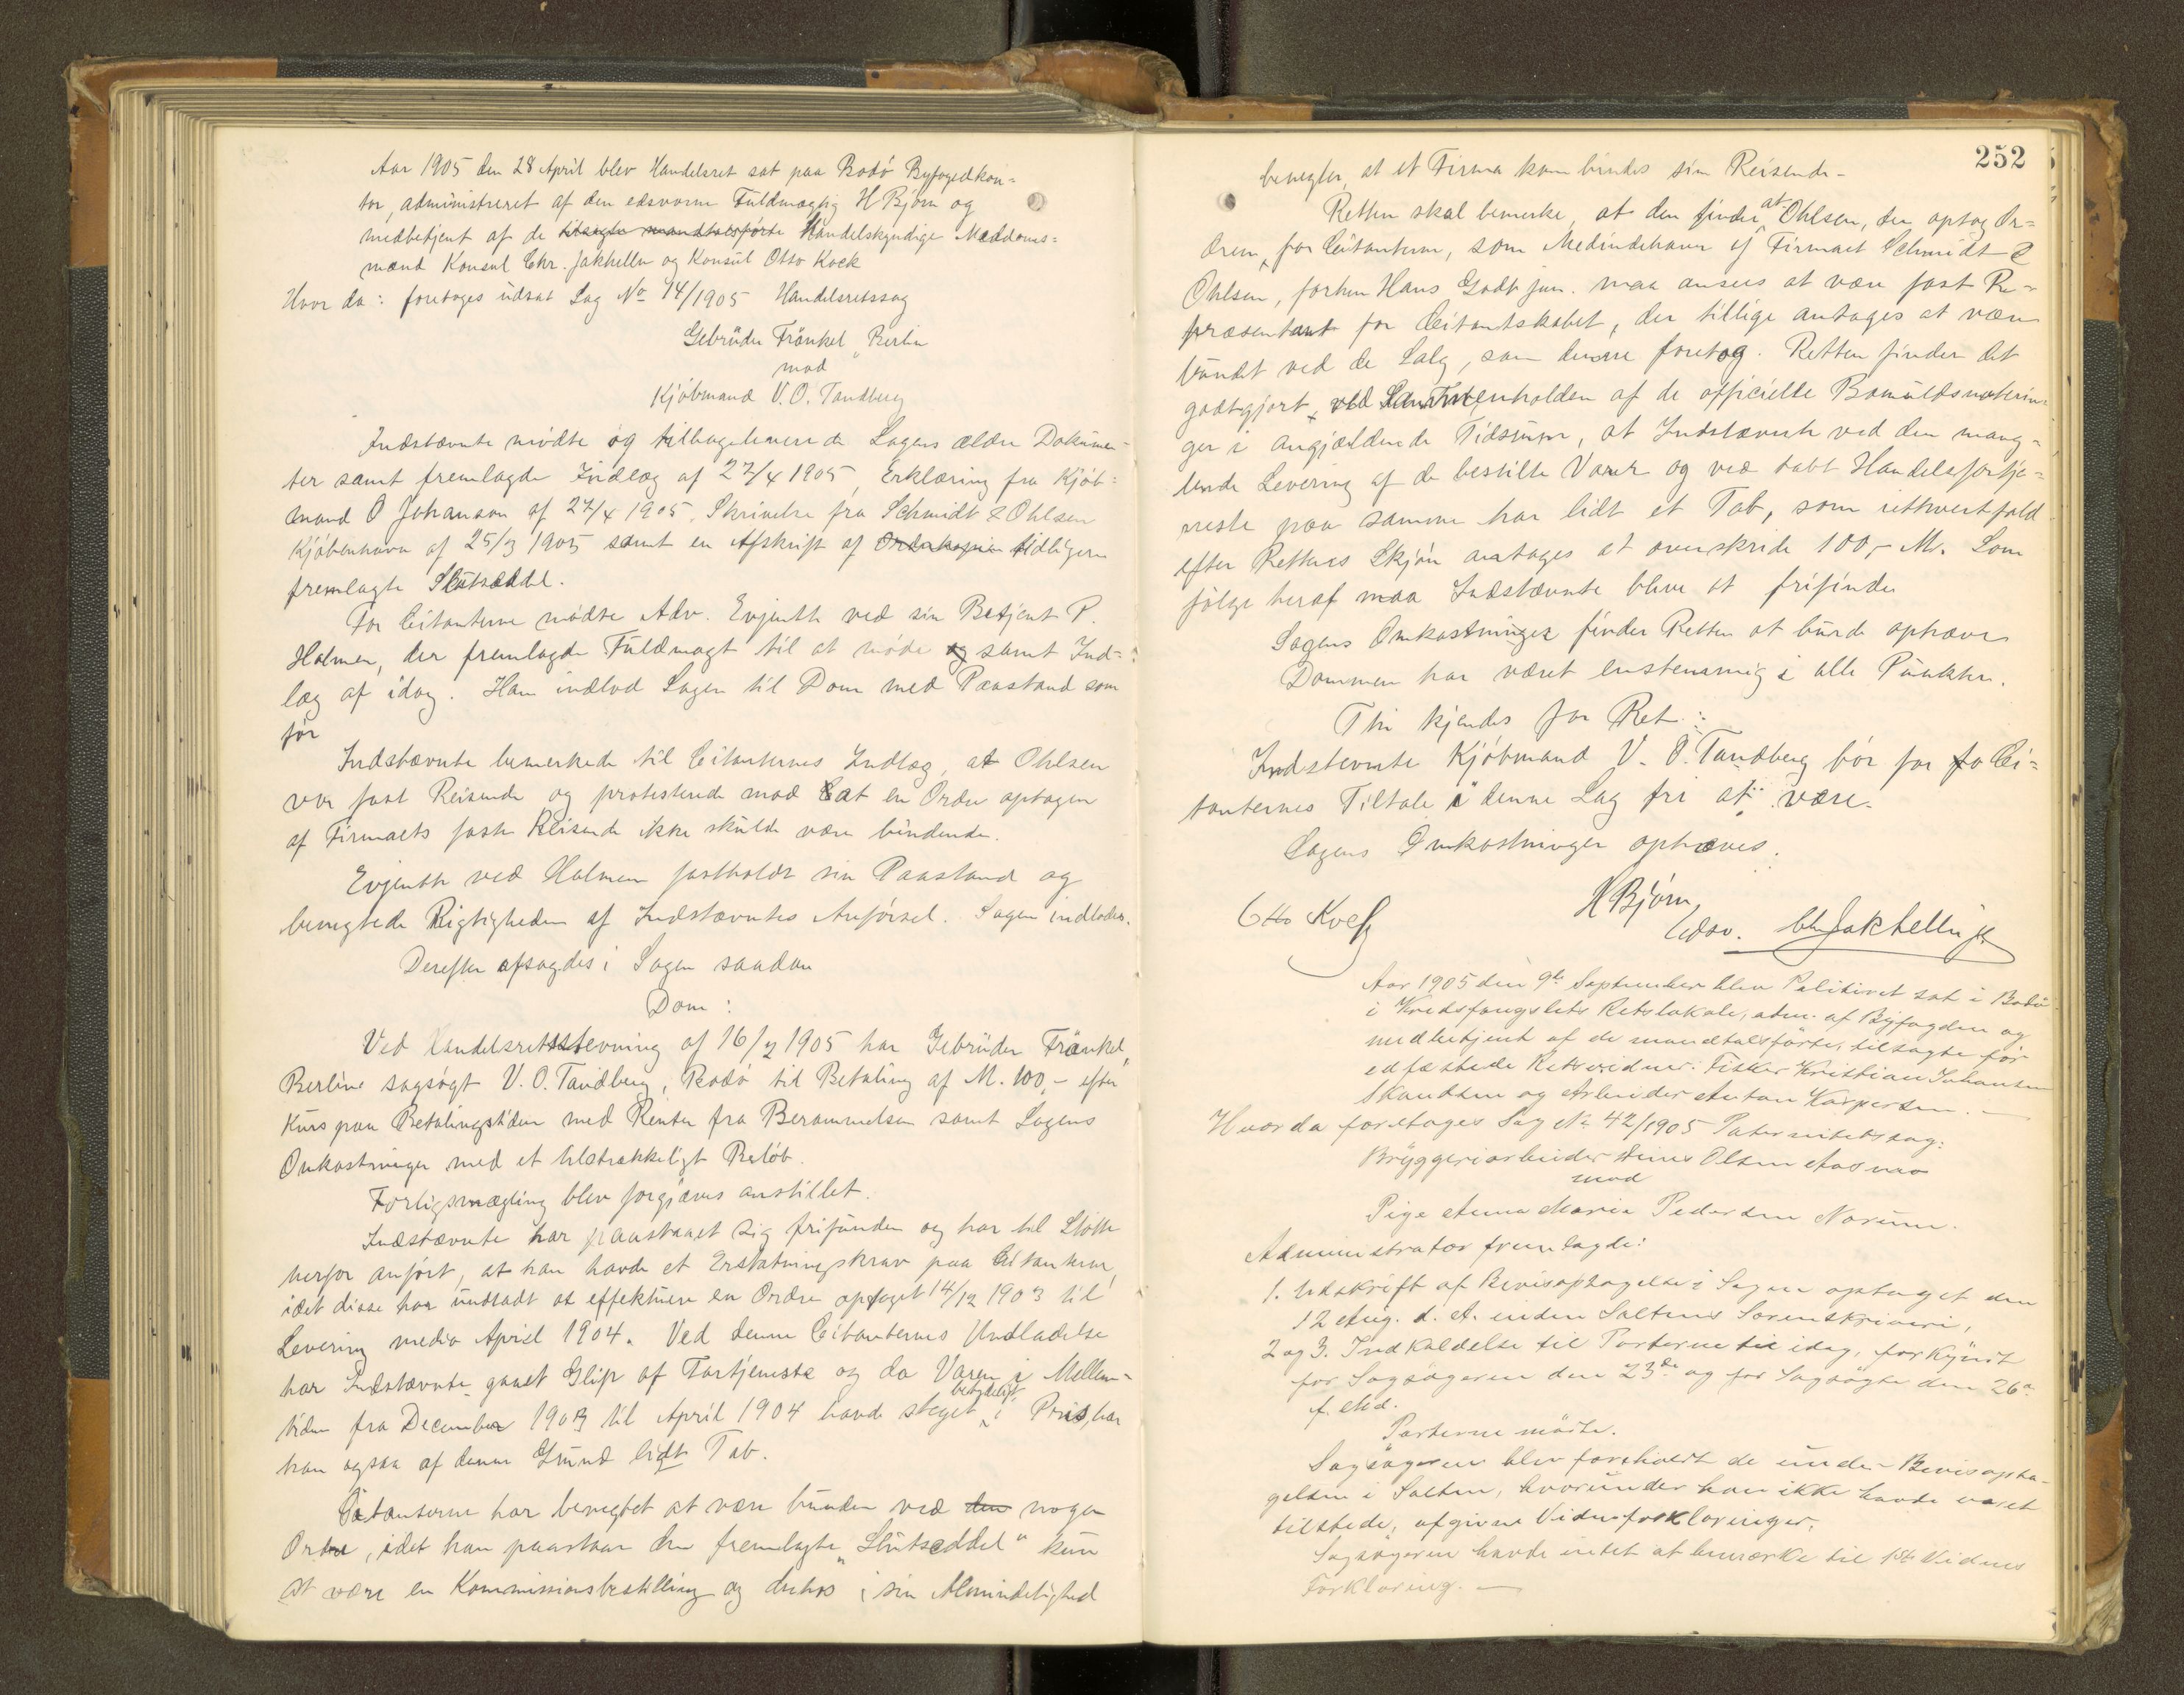 Aar 1905 den 28 April blev Handelsret sat paa Bodö Byfogedkon=
tor, administreret af den edsvorne Fuldmægtig H Bjørn og
medbetjent af de tilsagte mandtalsførte Handelskyndige Meddoms=
mænd Konsul Chr. Jakhelln og Konsul Otto Kock
Hvor da: foretoges udsat Sag No 14/1905 Handelsretssag
Gebrüder Fränkel, Berlin
mod
Kjöbmand V. O. Tandberg
Indstævnte mödte og tilbageleverede Sagens ældre Dokumen=
ter samt fremlagde Indlæg af 27/4 1905, Erklæring fra Kjöb=
mand O Johanson af 27/4 1905, Skrivelse fra Schmidt & Ohlsen
Kjöbenhavn af 25/3 1905 samt en Afskrift af Ordrekopien tidligere
fremlagte Slutseddel.
For Citanterne mödte Adv. Evjenth ved sin Betjent P.
Holmen, der fremlagde Fuldmagt til at möde og samt Ind=
læg af idag. Han indlod Sagen til Dom med Paastand som
før
Indstævnte bemerkede til Citanternes Indlæg, at Ohlsen
var fast Reisende og protesterede mod at en Ordre optagen
af Firmaets faste Reisende ikke skulde være bindende.
Evjenth ved Holmen fastholdt sin Paastand og
benegtede Rigtigheden af Indstævntes Anförsel. Sagen indlodes.
Derefter afsagdes i Sagen saadan
Dom:
Ved Handelsretsstevning af 16/2 1905 har Gebrüder Fränkel,
Berlin sagsögt V. O. Tandberg, Bodö til Betaling af M. 100,- efter
Kurs paa Betalingstiden med Renter fra Berammelsen samt Sagens
Omkostninger med et tilstrækkeligt Belöb.
Forligsmægling blev forgjæves anstillet.
Indstævnte har paastaaet sig frifunden og har til Stötte
herfor anfört, at han havde et Erstatningskrav paa Citanterne,
idet disse har undladt at effektuere en Ordre optaget 14/12 1903 til
Levering medio April 1904. Ved denne Citanternes Undladelse
har Indstævnte gaaet Glip af Fortjeneste og da Varen i Mellem=
tiden fra December 1903 til April 1904 havde steget betydeligt i Pris, har
han ogsaa af denne Grund lidt Tab.
Citanterne har benegtet at være bunden ved den nogen
Ordre, idet han paastaar den fremlagte "Slutseddel" kun
at være en Kommissionsbestilling og derhos i sin Almindelighed
252
benegter, at et Firma kan bindes sin Reisende-
Retten skal bemerke, at den finder at Ohlsen, der optog Or=
dren, for Citanterne, som Medindehaver af Firmaet Schmidt &
Ohlsen, forhen Hans Godt jun. maa ansees at være fast Re=
præsentant for Citantskabet, der tillige antages at være
bundet ved de Salg, som denne foretog. Retten finder det
godtgjort, ved Sammenholden af de officielle Bomuldsnoterin=
ger i angjældende Tidsrum, at Indstævnte ved den mang=
lende Levering af de bestilte Varer og ved tabt Handelsfortje=
neste paa samme har lidt et Tab, som i ethvertfald
efter Rettens Skjön antages at overskride 100,- M. Som
følge heraf maa Indstævnte blive at frifinde
Sagens Omkostninger finder Retten at burde ophæves
Dommen har været enstemmig i alle Punkter.
Thi kjendes for Ret:
Indstevnte Kjöbmand V. O. Tandberg bör for Ci=
tanternes Tiltale i denne Sag fri at være.
Sagens Omkostninger ophæves.
Otto Kock
H Bjørn
edsv.
Chr Jakhelln jr
Aar 1905 den 9de September blev Politiret sat i Bodö
i Kredsfængslets Retslokale, adm. af Byfogden og
medbetjent af de mandtalsførte, tilsagte før
edfæstede Retsvidner: Fisker Kristian Johansen
Skandsen og Arbeider Anton Kaspersen. -
Hvorda foretoges Sag No 42/1905 Paternitetssag:
Bryggeriarbeider Olsen Aasmo
mod
Pige Anna Maria Pedersen Norum.
Administrator fremlagde:
1. Udskrift af Bevisoptagelse i Sagen optaget den
12 Aug. d. A. inden Saltens Sorenskriveri,
2 og 3. Indkaldelse til Parterne til idag, forkyndt
for Sagsögeren den 23de og for Sagsögte den 26de
f. Md.
Parterne mödte.
Sagsögeren blev foreholdt de under Bevisopta=
gelsen i Salten, hvorunder han ikke havde været
tilstede, afgivne Vidneforklaringer.
Sagsögeren havde intet at bemærke til 1ste Vidnes
Forklaring. -